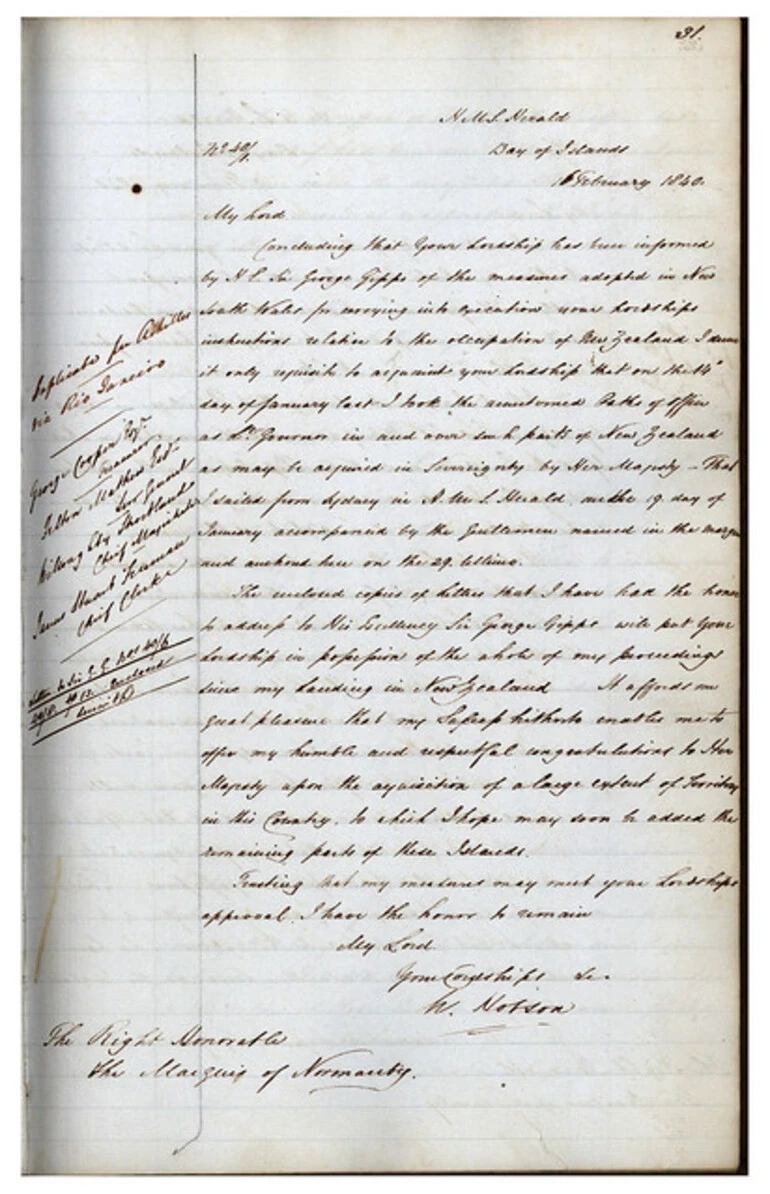 31.
H.M.S. Herald
No 40/1.
Bay of Islands
16 February 1840.
My Lord
Concluding that Your Lordship has been informed
by H.E. Sir George Gipps of the measures adopted in New
South Wales for carrying into execution your Lordships
instructions relative to the occupation of New Zealand I deem
it only requisite to acquaint your Lordship that on the 14th
day of January last I took the Oaths of Office
as Lt. Governor in and over such parts of New Zealand
as may be acquired in Sovereignty by Her Majesty - That
I sailed from Sydney in H.M.S. Herald on the 19 day of
January accompanied by the Gentlemen named in the margin
and anchored here on the 29. Ultimo.
The enclosed copies of letters that I have had the honor
to address to His Excellency Sir George Gipps will put Your
Lordship in possession of the whole of my proceedings
since my landing in New Zealand It affords me
great pleasure that my Success hitherto enables me to
offer my humble and respectful congratulations to Her
Majesty upon the aquisition of a large extent of Territory
in this Country, to which I hope may soon be added the
remaining parts of these Islands.
Trusting that my measures may meet your Lordships
approval. I have the honor to remain
My Lord
Your Lordships &c.
W. Hobson
The Right Honorable
the Marquis of Normanby.
Duplicate per Achilles
via Rio Janeiro
George Cooper Esqr.
Treasurer
Felton Mathew Esqr.
Sur General
Willoughby Shortland
Chief Magistrate
James Stuart Freeman
Chief Clerk
Letter to Sir G. G. Nos 40/6
Enclosed